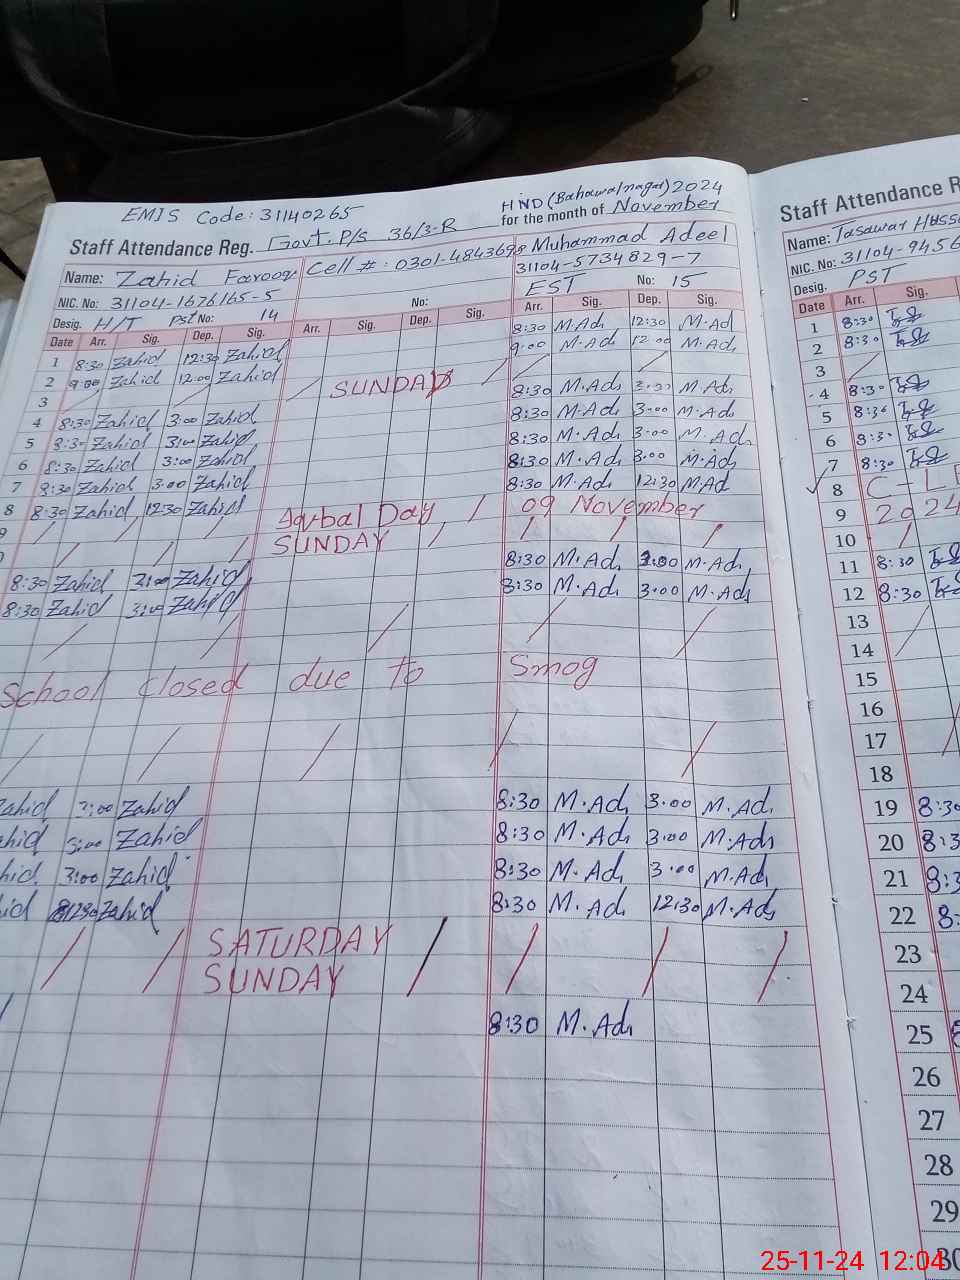 EMIS Code: 31140265
HND (Bahawalnagar) 2024
Staff Attendance Reg. Govt. P/S 36/3-R for the month of November
Name: Zahid Farooq Cell #: 0301-4843698 Muhammad Adeel
NIC. No: 31104-1676165-5 31104-5734829-7
Desig. H/T PST No: 14 No: EST No: 15
Date Arr. Sig. Dep. Sig. Arr. Sig. Dep. Sig. Arr. Sig. Dep. Sig.
1 8:30 Zahid 12:30 Zahid 8:30 M.Ad 12:30 M.Ad
2 9:00 Zahid 12:00 Zahid 9:00 M.Ad 12:00 M.Ad
3 / / / SUNDAY / / /
4 8:30 Zahid 3:00 Zahid 8:30 M.Ad M.Ad
5 8:30 Zahid 3:00 Zahid 8:30 M.Ad 3:00 M.Ad
6 8:30 Zahid 3:00 Zahid 8:30 M.Ad 3:00 M.Ad
7 8:30 Zahid 3:00 Zahid 8:30 M.Ad 3:00 M.Ad
8 8:30 Zahid 12:30 Zahid 8:30 M.Ad 12:30 M.Ad
9 / / / Iqbal Day / 09 November
/ / / SUNDAY / / / /
8:30 Zahid 3:00 Zahid 8:30 M.Ad 3:00 M.Ad
8:30 Zahid 3:00 Zahid 8:30 M.Ad 3:00 M.Ad
School closed due to Smog
Zahid 3:00 Zahid 8:30 M.Ad 3:00 M.Ad
3:00 Zahid 8:30 M.Ad 3:00 M.Ad
3:00 Zahid 8:30 M.Ad 3:00 M.Ad
12:30 Zahid 8:30 M.Ad 12:30 M.Ad
/ / SATURDAY / / / /
SUNDAY
8:30 M.Ad
Staff Attendance R
Name: Tasawar Huss
NIC. No: 31104-9456
Desig. PST
Date Arr. Sig.
1 8:30
2 8:30
3 /
4 8:30
5 8:30
6 8:30
7 8:30
8 C-L
9 2024
10 /
11 8:30
12 8:30
13
14
15
16
17
18
19 8:30
20 8:3
21 8:3
22 8:
23
24
25
26
27
28
29
30
25-11-24 12:04